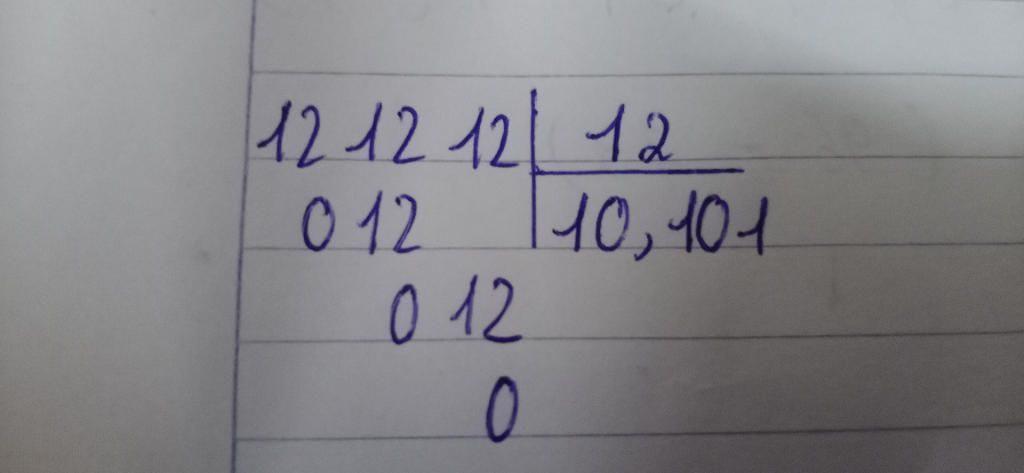 12 12 12 | 12
0 12 | 10,101
0 12
0